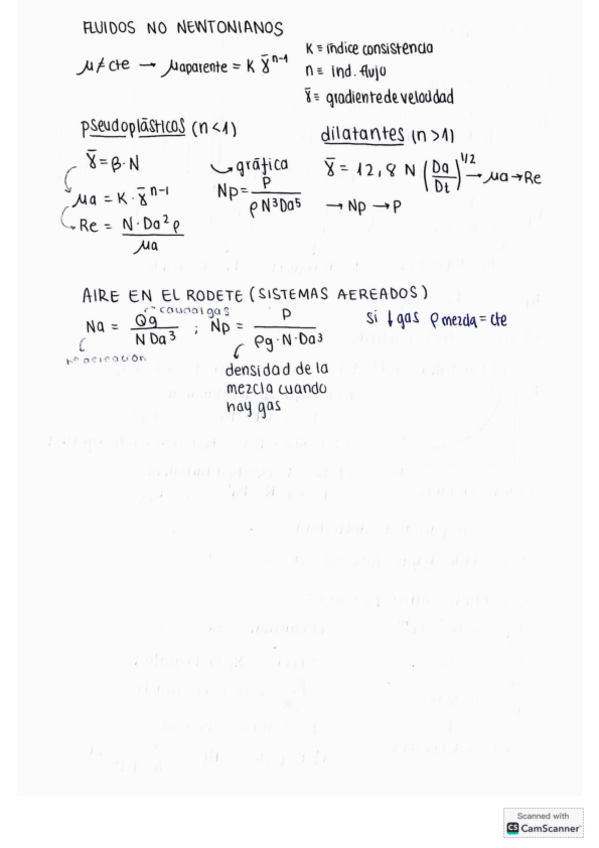 FLUIDOS NO NEWTONIANOS
μ ≠ cte → μaparente = K γ̄ⁿ⁻¹
K = índice consistencia
n = ind. flujo
γ̄ = gradiente de velocidad
pseudoplásticos (n<1)
γ̄ = β·N
μa = K·γ̄ⁿ⁻¹
Re = N·Da²ρ / μa
gráfica
Np = P / ρN³Da⁵
dilatantes (n>1)
γ̄ = 12,8 N (Da/Dt)^1/2 → μa → Re
→ Np → P
AIRE EN EL RODETE (SISTEMAS AEREADOS)
caudal gas
Na = Qg / NDa³ ; Np = P / ρg·N·Da³
si ↓ gas ρ mezcla = cte
nº aireación
densidad de la
mezcla cuando
hay gas
Scanned with
CS CamScanner